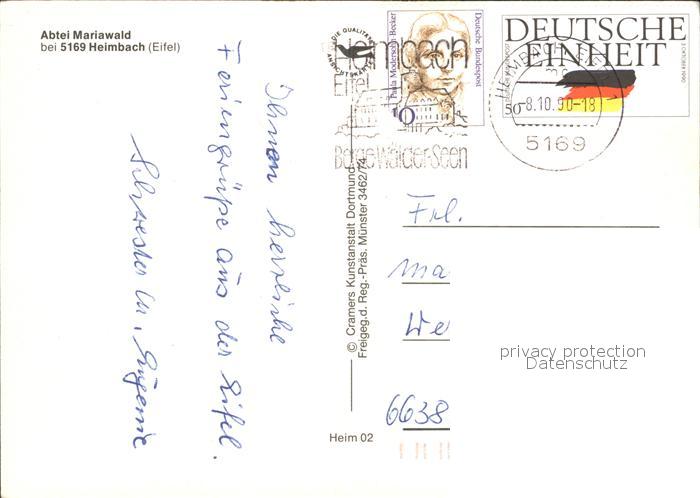 Abtei Mariawald
bei 5169 Heimbach (Eifel)
Ihnen herzliche
Feriengrüße aus der Eifel.
Schwester M. Eugenie
DIE QUALITÄTS
ANSICHTSKARTE
Heimbach
Eifel
Berge Wälder Seen
Paula Modersohn-Becker
Deutsche Bundespost
10
DEUTSCHE
EINHEIT
50
HEIMBACH
-8.10.90-18
5169
© Cramers Kunstanstalt Dortmund
Freigeg.d. Reg.-Präs. Münster 3462/74
Heim 02
Frl.
Ma
We
6638
privacy protection
Datenschutz